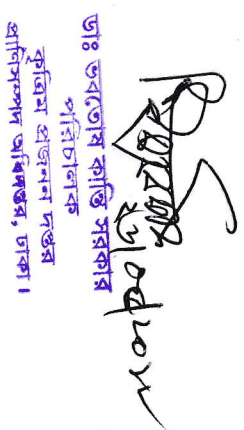 ডাঃ ভবতোষ কান্তি সরকার
পরিচালক
কৃত্রিম প্রজনন দপ্তর
প্রাণিসম্পদ অধিদপ্তর, ঢাকা।